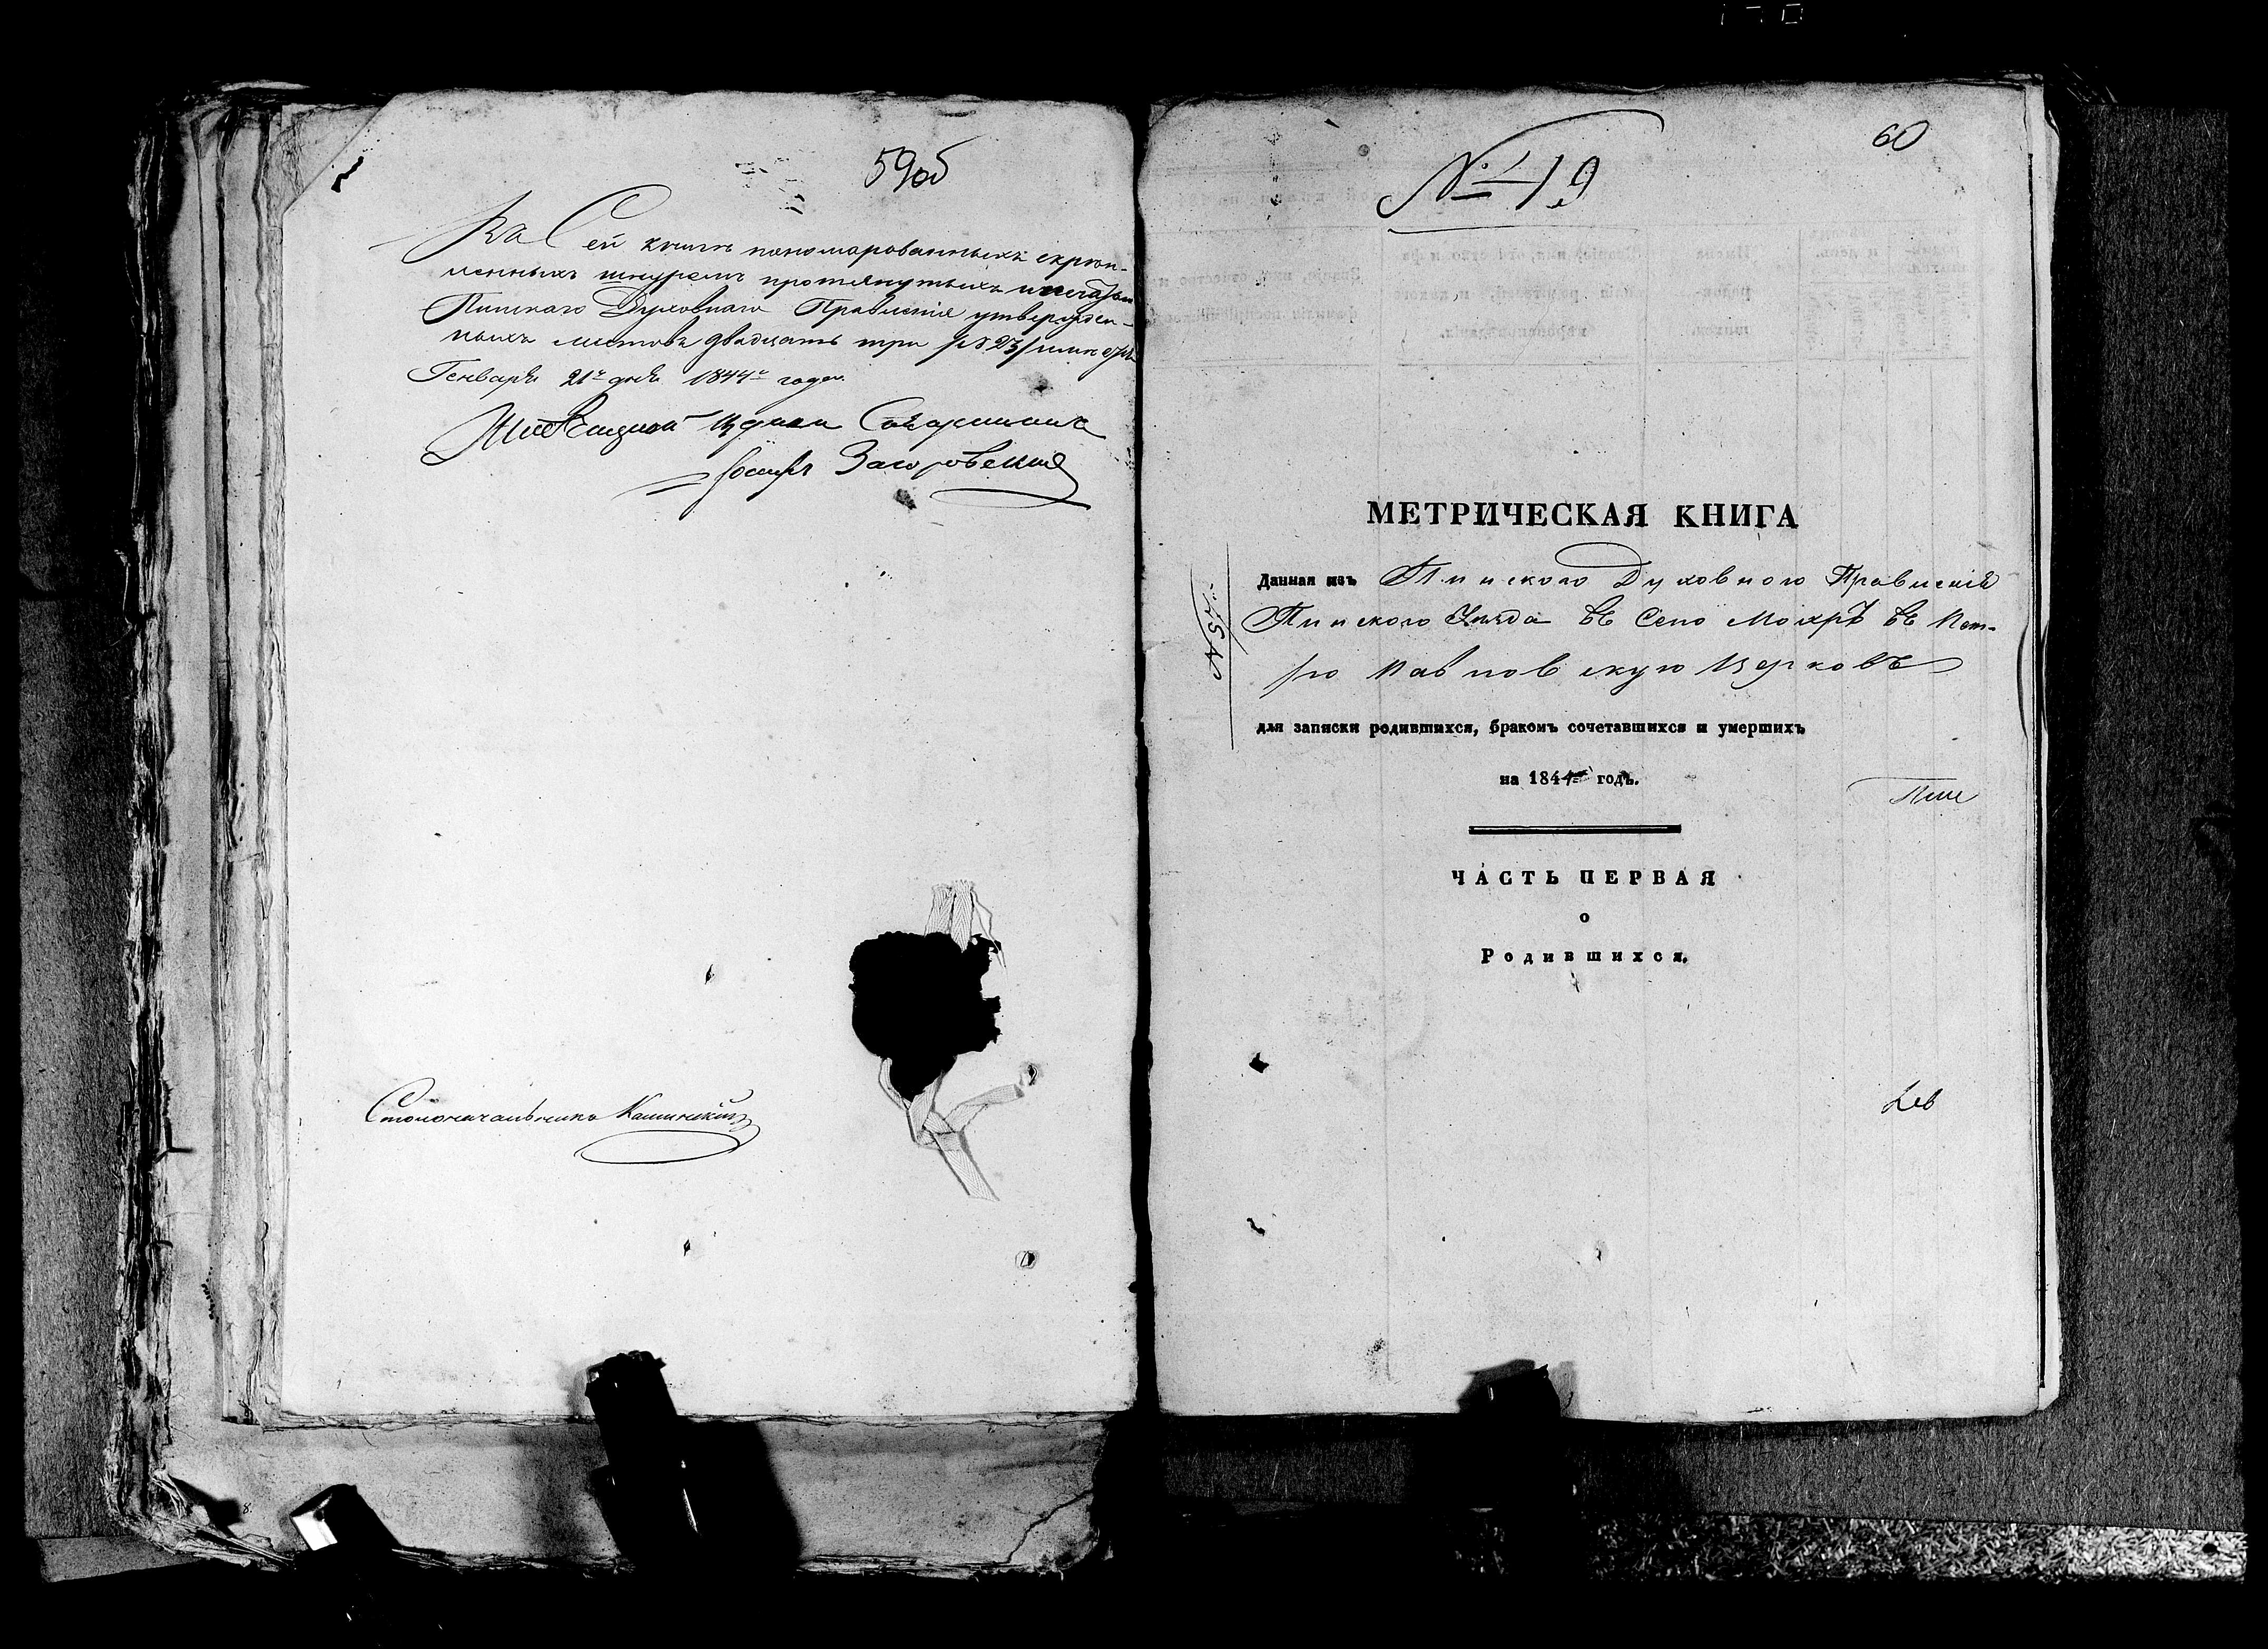 59об
Въ Сей книгѣ пономерованныхъ скрѣп-
ленныхъ шнуромъ протянутыхъ и печатью
Пинскаго Духовнаго Правленія утвержден-
ныхъ листовъ двадцать три №23
Генваря 21го дня 1844го года.
Іосифъ Загоровскій
Столоначальникъ Калинскій
60
№ 19
МЕТРИЧЕСКАЯ КНИГА
Данная изъ Пинского Духовного Правленія
Пинского Уезда въ Село Мохрѣ въ Пет-
ро Павловскую Церковъ
для записки родившихся, бракомъ сочетавшихся и умершихъ
на 1844 годъ.
ЧАСТЬ ПЕРВАЯ
о
Родившихся.